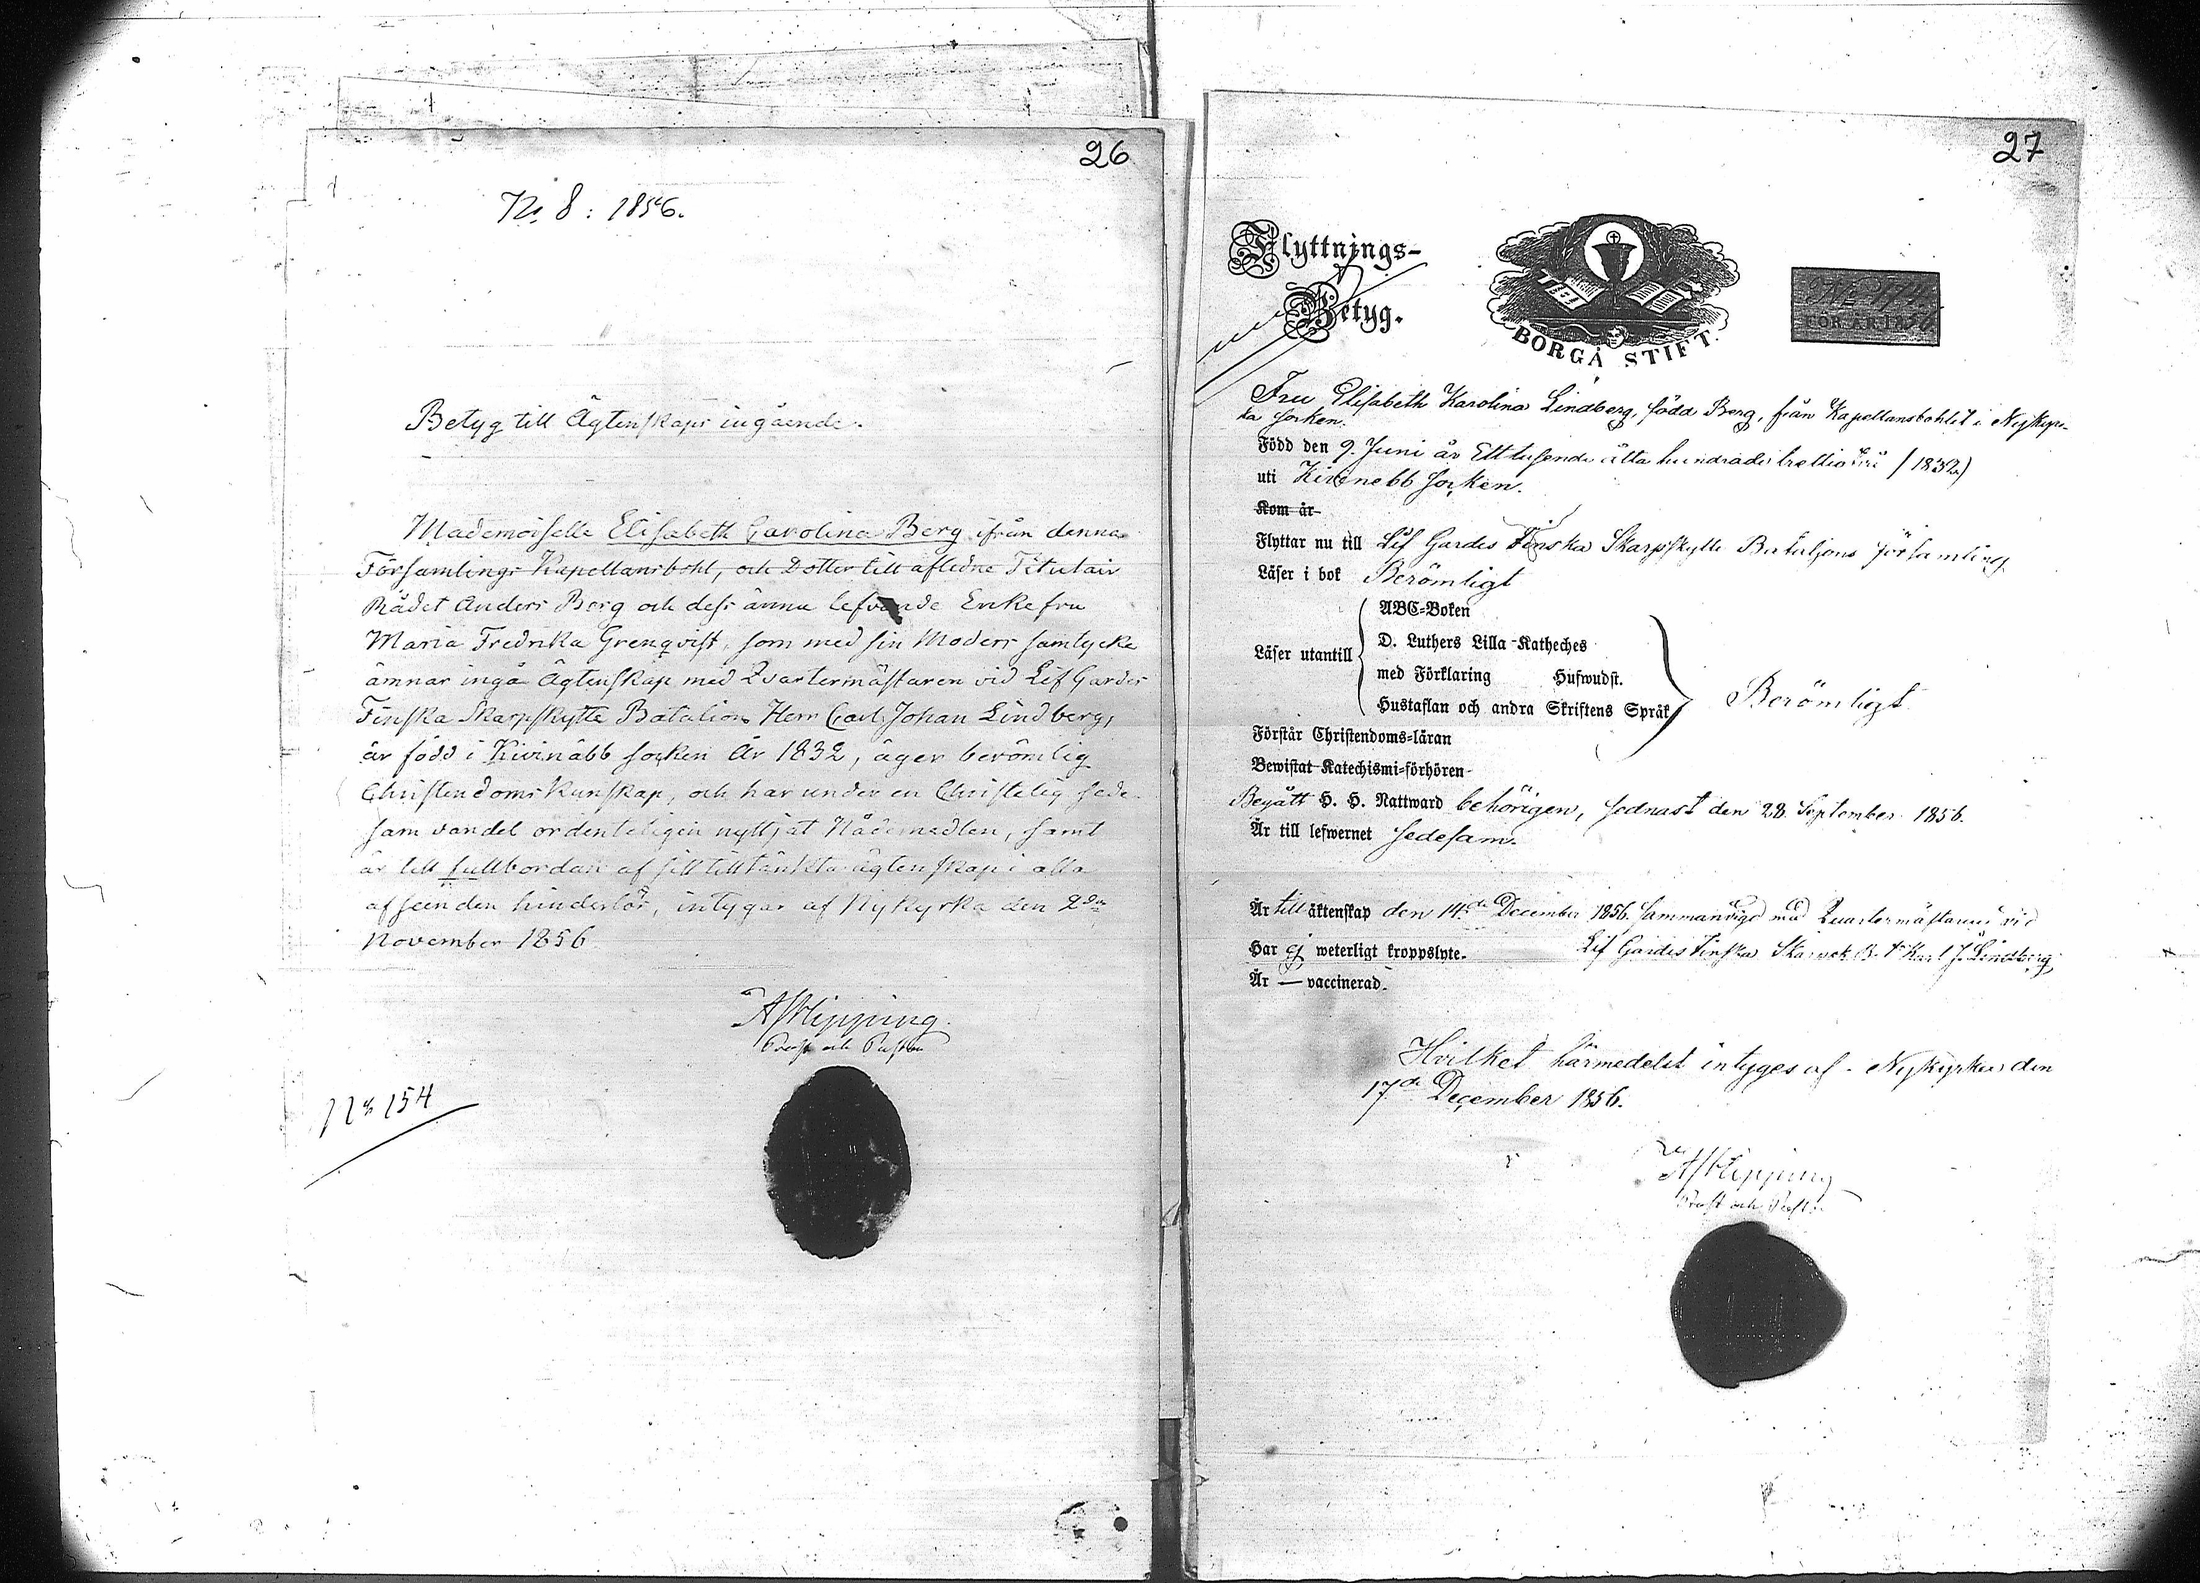 26
No 8: 1856.
Betyg till Ägtenskaps ingående.
Mademoiselle Elisabeth Carolina Berg ifrån denna
Församlings Kapellansbohl, och Dotter till aflidne Titulair
Rådet Anders Berg och dess ännu lefvande Enkefru
Maria Fredrika Grenqvist, som med sin Moders samtycke
ämnar ingå Ägtenskap med Qvartermästaren vid Lif Gardes
Finska Skarpskytte Batalion Herr Carl Johan Lindberg,
är född i Kivinäbb socken År 1832, äger berömlig
Christendoms Kunskap, och har under en Christelig sede-
sam vandel ordenteligen nyttjat Nådemedlen, samt
är till fullbordan af sitt tilltänkta ägtenskap i alla
afseenden hinderlös, intygar af Nykyrka den 2dra
November 1856
Prost och Pastor
No 154
27
Flyttnings-
Betyg.
BORGÅ STIFT.
FÖR ÅR 1856
Fru Elisabeth Karolina Lindberg, född Berg, från Kapellansbohlet i Nykyr-
ka socken.
Född den 9. Juni år Ett tusende åtta hundrade trettio två (1832)
uti Kivinebb socken.
Kom år
Flyttar nu till Lif Gardes Finska Skarpskytte Bataljons församling
Läser i bok Berömligt
Läser utantill
ABC-Boken
D. Luthers Lilla Katheches
med Förklaring Hufwudst.
Hustaflan och andra Skriftens Språk
Berömligt
Förstår Christendoms-läran
Bewistat Katechismi-förhören
Begått H. H. Nattward behörigen, sednast den 28. September 1856.
Är till lefwernet sedesam.
Är till äktenskap den 14de December 1856 sammanvigd med Quartermästaren vid
Lif Gardes Finska Skarpsk. B. Karl J. Lindberg
Har ej weterligt kroppslyte.
Är — vaccinerad.
Hvilket härmedelst intyges af Nykyrka den
17de December 1856.
Prost och Pastor